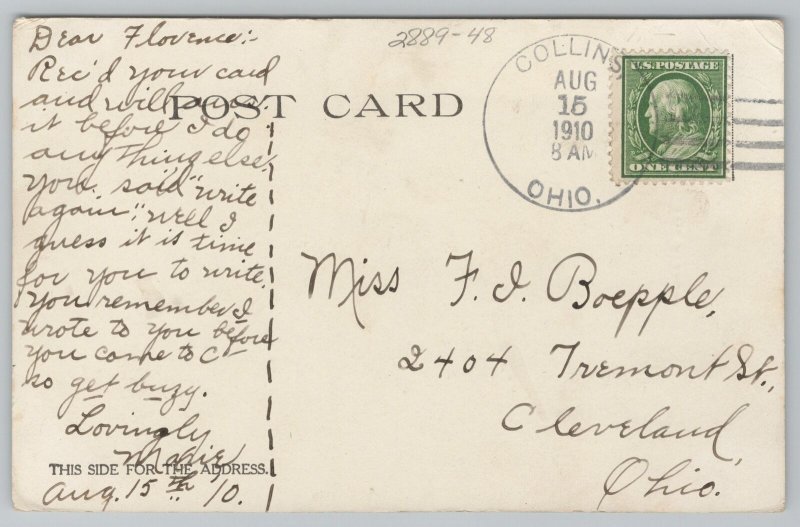 Dear Florence:-
Rec'd your card
and will answer
it before I do
anything else.
You said "write
again," well I
guess it is time
for you to write.
You remember I
wrote to you before
you came to C-
so get buzy.
Lovingly
Aug. 15th /10.
THIS SIDE FOR THE ADDRESS.
2889-48
POST CARD
COLLINS
AUG
15
1910
8 AM
OHIO.
U.S. POSTAGE
ONE CENT
Miss F. I. Boepple,
2404 Tremont St.,
Cleveland,
Ohio.